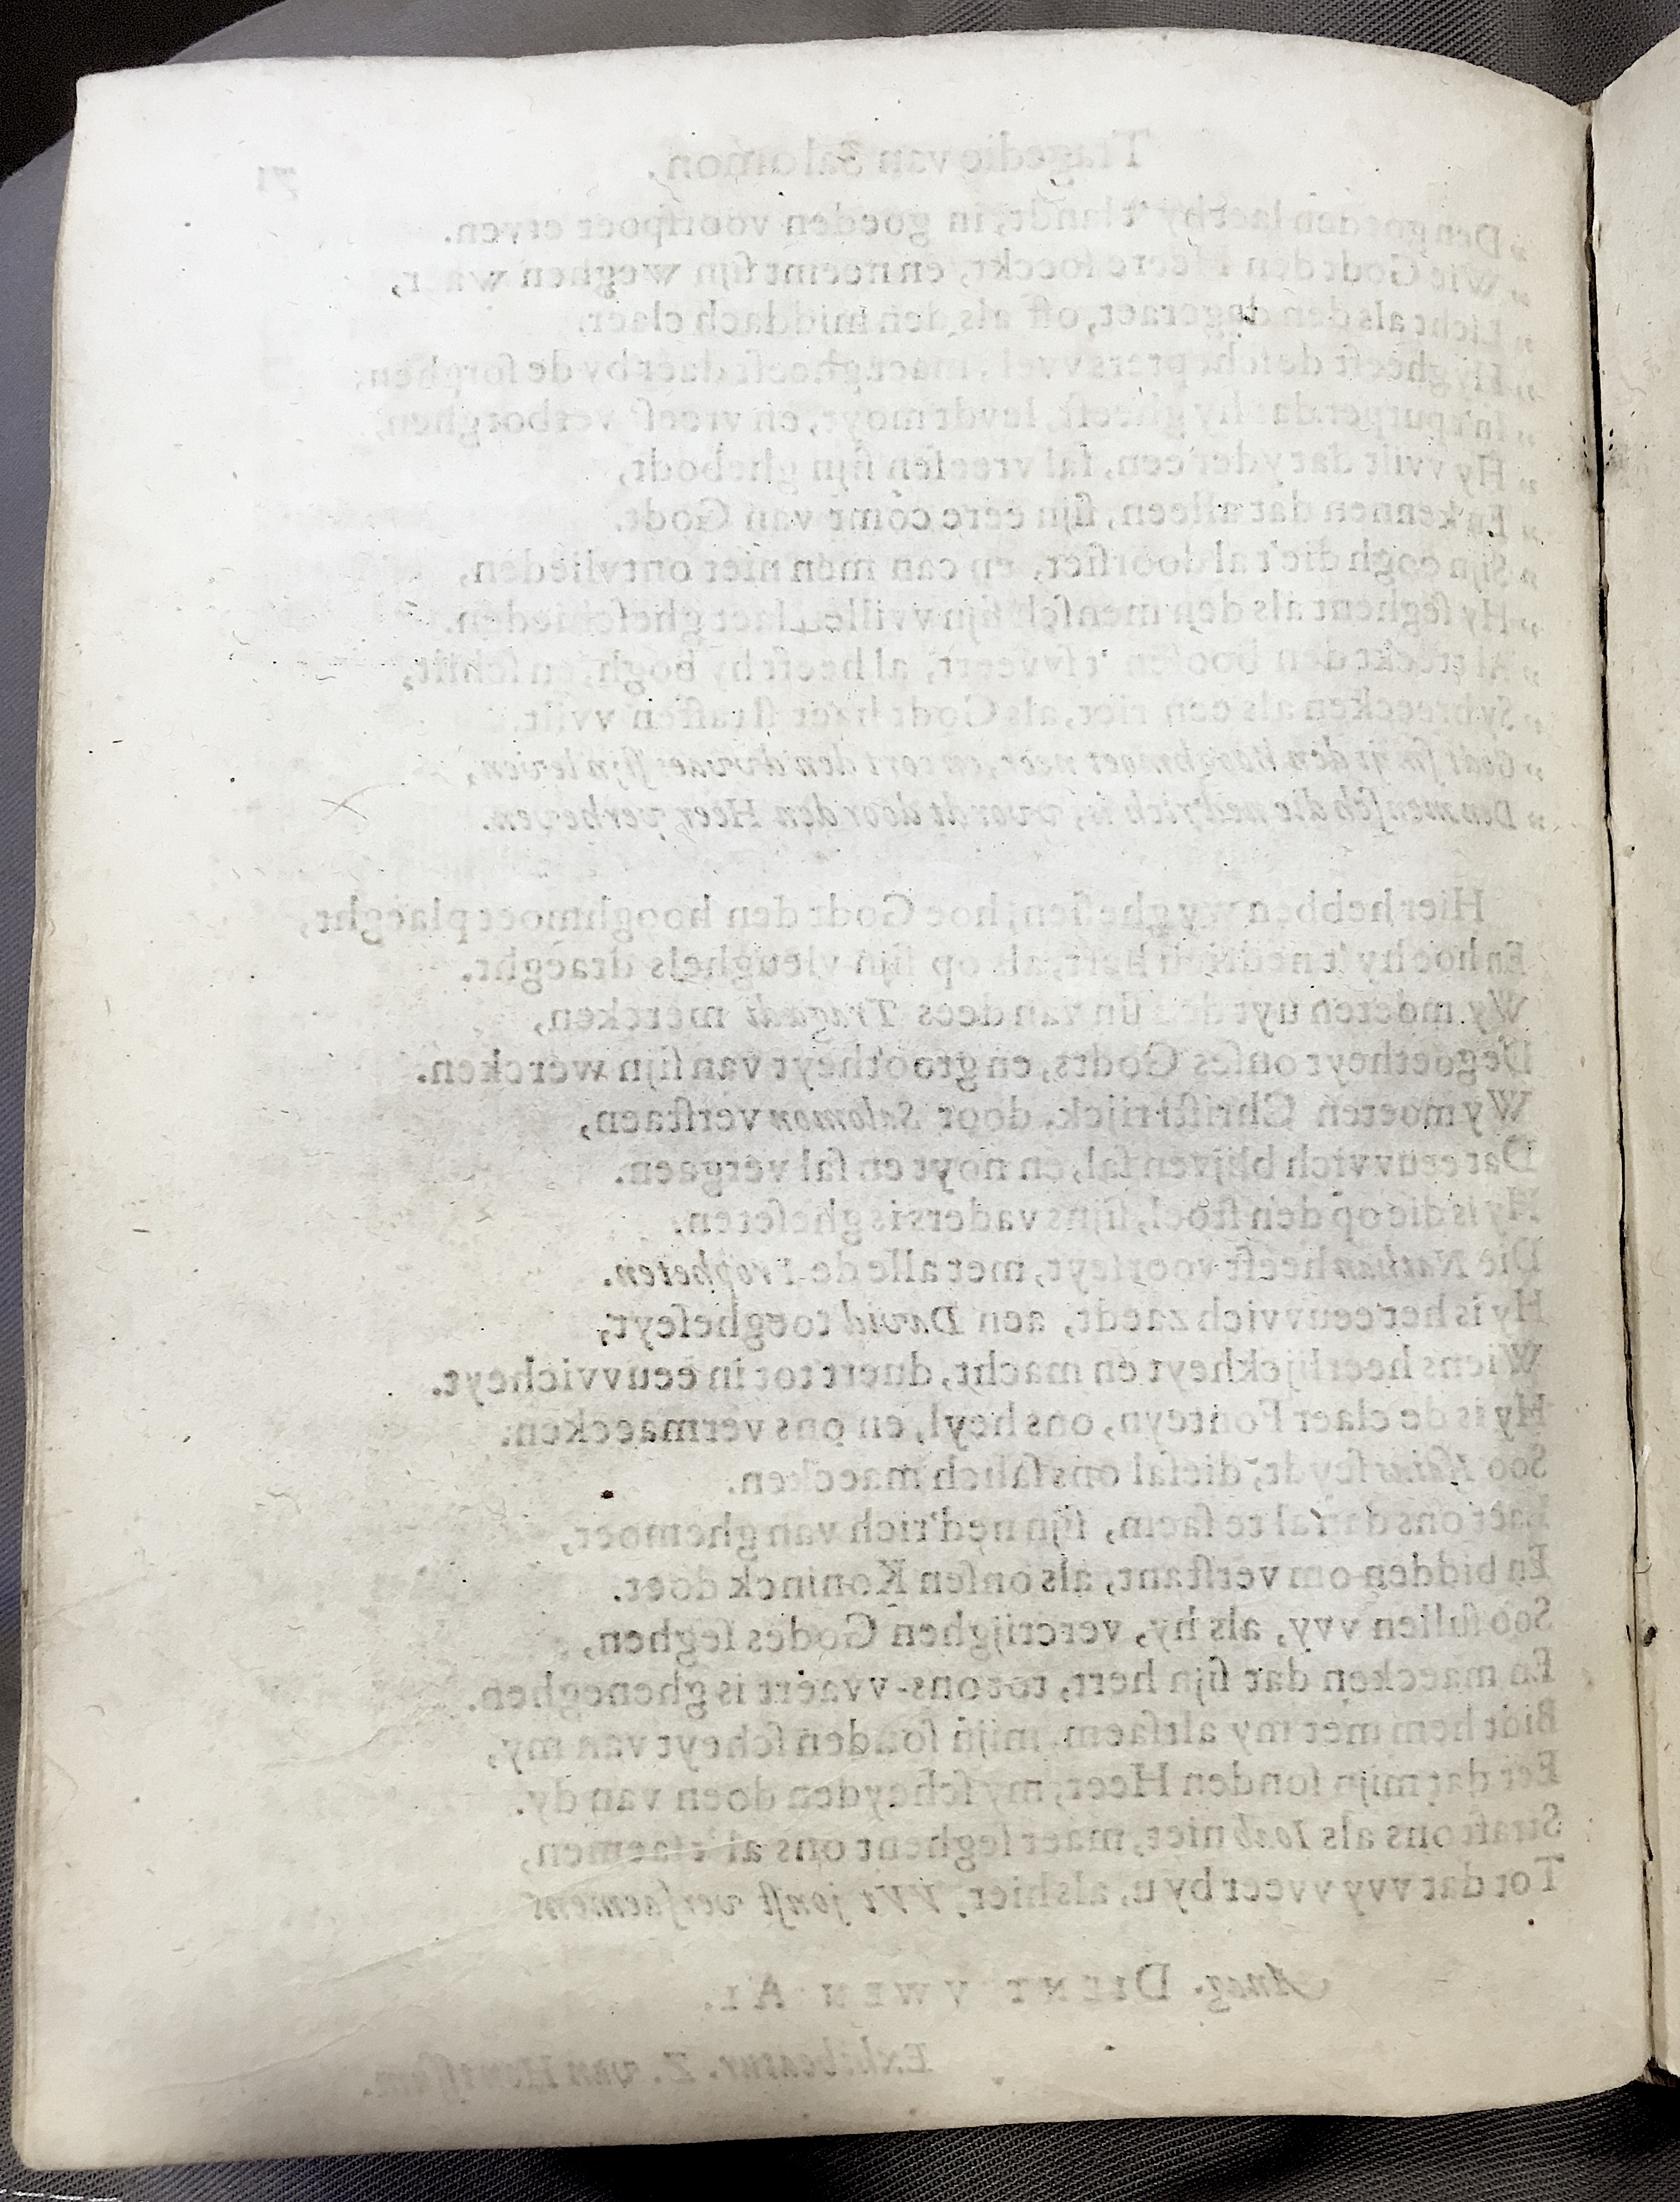 Tragedie van Salomon. 71
„ Den goeden laet hy 't landt, in goeden voorspoet erven.
„ Wie Godt den Heere soeckt, en neemt sijn weghen waer,
„ Licht als den dageraet, oft als den middach claer.
„ Hy gheeft de schepters wel, maer gheeft daer by de sorghen,
„ In't purper dat hy gheeft, leydt moyt, en vrees' verborghen,
„ Hy vvilt dat yder een, sal vreesen sijn ghebodt,
„ En kennen dat alleen, sijn eere comt van Godt.
„ Sijn oogh die't al doorsiet, en can men niet ontvlieden,
„ Hy seghent als den mensch sijn vville laet gheschieden.
„ Al treckt den boosen 't svveert, al heeft hy bogh, en schilt,
„ Sy breecken als een riet, als Godt haer straffen vvilt.
„ Godt smijt den hooghmoet neer, en cort den dwaes sijn leven,
„ Den mensch die nedrich is, wordt door den Heer verheven.
Hier hebben wy ghesien, hoe Godt den hooghmoet plaeght,
En hoe hy 't nedrich hert, als op sijn vleughels draeght.
Wy moeten uyt den sin van dees Tragedi mercken,
De goetheyt onses Godts, en grootheyt van sijn wercken.
Wy moeten Christi rijck, door Salomon verstaen,
Dat eeuvvich blijven sal, en noyt en sal vergaen.
Hy is die op den stoel, sijns vaders is gheseten,
Die Nathan heeft voorseyt, met alle de Propheten.
Hy is het eeuvvich zaedt, aen David toegheseyt,
Wiens heerlijckheyt en macht, duert tot in eeuvvicheyt.
Hy is de claer Fonteyn, ons heyl, en ons vermaecken,
Soo seydt, die sal ons salich maecken.
Laet ons dan al te saem, sijn ned'rich van ghemoet,
En bidden om verstant, als onsen Koninck doet.
Soo sullen vvy, als hy, vercrijghen Godes seghen,
En maecken dat sijn hert, tot ons-vvaert is gheneghen.
Bidt hem met my altsaem, mijn sonden scheyt van my,
Eer dat mijn sonden Heer, my scheyden doen van dy.
Straft ons als Ioab niet, maer seghent ons al t'saemen,
Tot dat vvy vveer by u, als hier, VVt jonst versaemen
Anag. DIENT VWEN AL.
Exhibeatur. Z. van